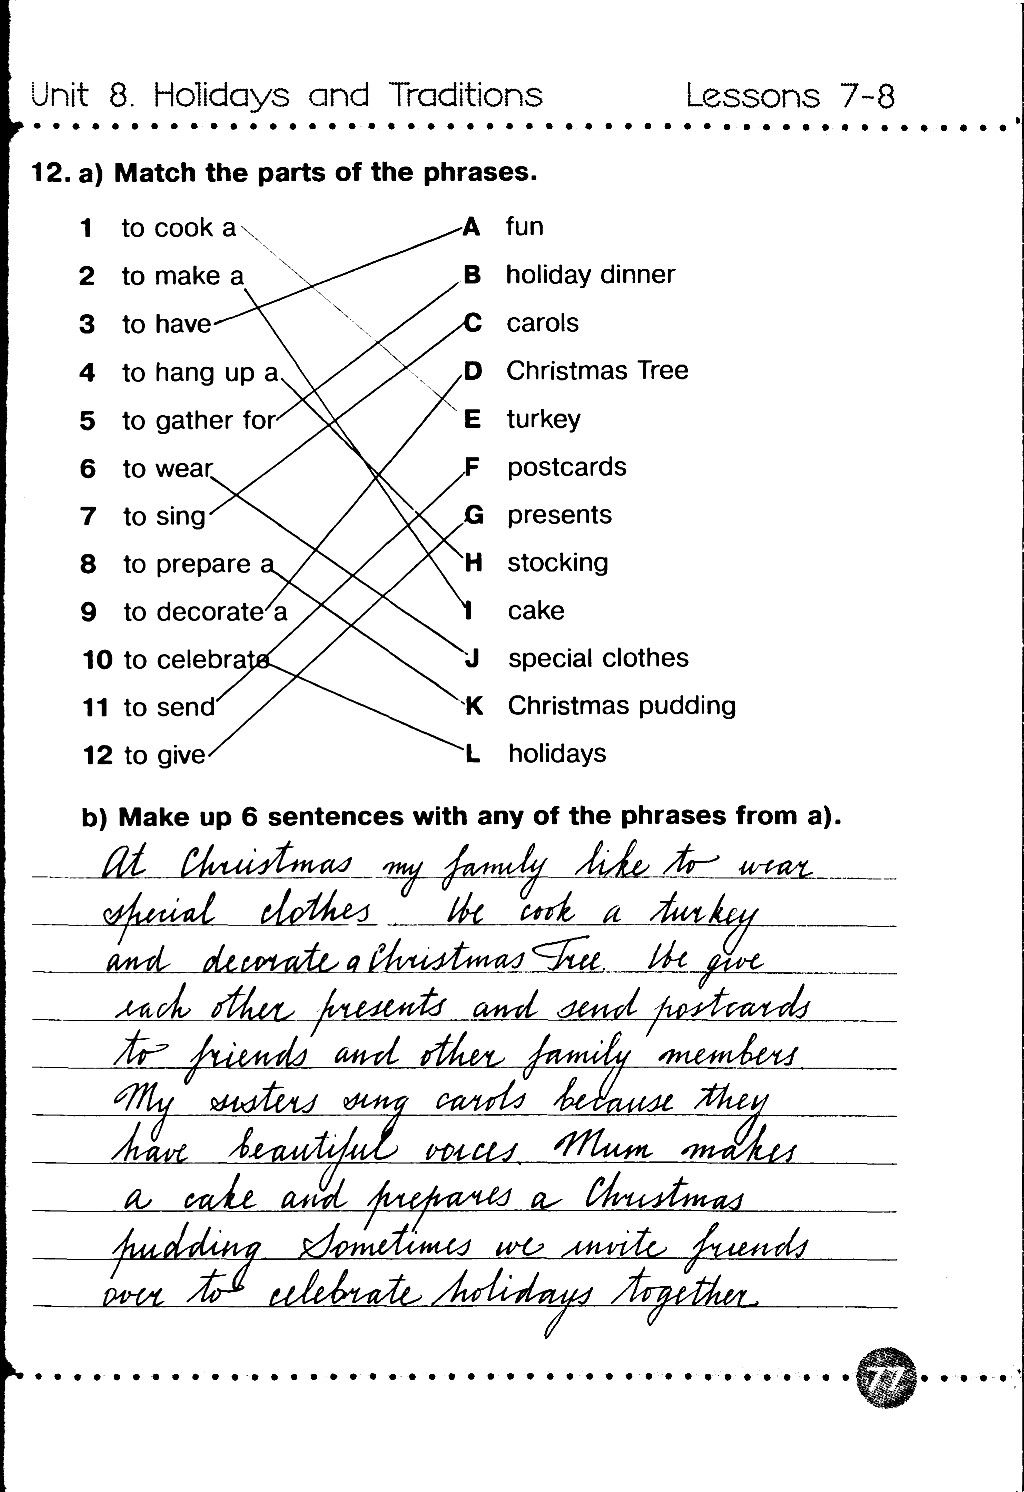 Unit 8. Holidays and Traditions Lessons 7-8
12. a) Match the parts of the phrases.
1 to cook a A fun
2 to make a B holiday dinner
3 to have C carols
4 to hang up a D Christmas Tree
5 to gather for E turkey
6 to wear F postcards
7 to sing G presents
8 to prepare a H stocking
9 to decorate a I cake
10 to celebrate J special clothes
11 to send K Christmas pudding
12 to give L holidays
b) Make up 6 sentences with any of the phrases from a).
At Christmas my family like to wear
special clothes. We cook a turkey
and decorate a Christmas Tree. We give
each other presents and send postcards
to friends and other family members.
My sisters sing carols because they
have beautiful voices. Mum makes
a cake and prepares a Christmas
pudding. Sometimes we invite friends
over to celebrate holidays together.
77